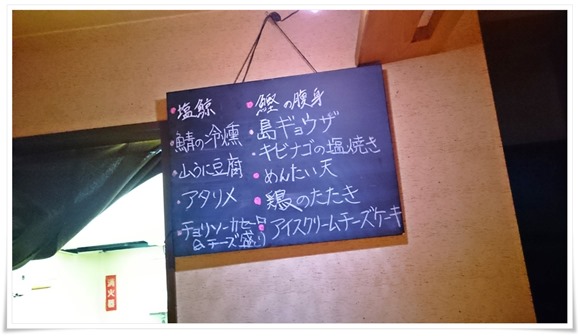 塩鯨
鯖の冷燻
山うに豆腐
アタリメ
チョリソーカセ日
&チーズ盛り
鰹の腹身
島ギョウザ
キビナゴの塩焼き
めんたい天
鶏のたたき
アイスクリームチーズケーキ
消火器